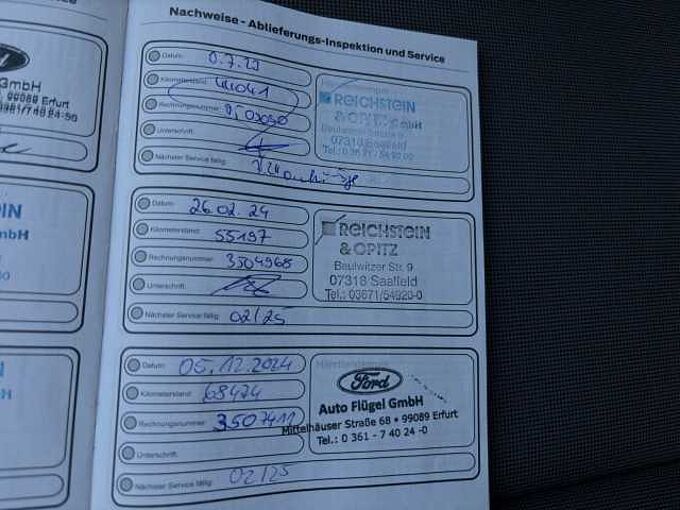 Nachweise - Ablieferungs-Inspektion und Service
GmbH
99089 Erfurt
Datum:
Kilometerstand: 44041
Rechnungsnummer:
Unterschrift:
Nächster Service fällig:
REICHSTEIN
& OPITZ GmbH
Beulwitzer Straße 9
07318 Saalfeld
Datum: 26.02.24
Kilometerstand: 55197
Rechnungsnummer: 3504968
Unterschrift:
Nächster Service fällig: 02/25
REICHSTEIN
& OPITZ
Beulwitzer Str. 9
07318 Saalfeld
Tel.: 03671/54920-0
Datum: 05.12.2024
Kilometerstand: 68474
Rechnungsnummer: 3507411
Unterschrift:
Nächster Service fällig: 02/25
Ford
Auto Flügel GmbH
Mittelhäuser Straße 68 • 99089 Erfurt
Tel.: 0 361 - 7 40 24 -0